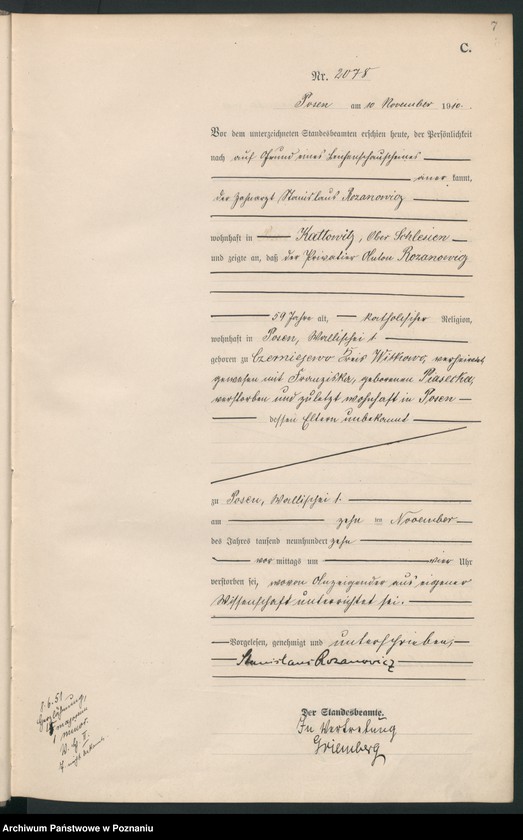 7
C.
Nr. 2078
Posen am 10 November 1910.
Vor dem unterzeichneten Standesbeamten erschien heute, der Persönlichkeit
nach auf Grund eines Leichenschauscheines
aner kannt,
der Zahnarzt Stanislaus Rozanowicz
wohnhaft in Kattowitz, Ober Schlesien
und zeigte an, daß der Privatier Anton Rozanowicz
59 Jahre alt, katholischer Religion,
wohnhaft in Posen, Wallischei 1
geboren zu Czerniejewo Kreis Witkowo, verheiratet
gewesen mit Franziska, geborenen Piasecka,
verstorben und zuletzt wohnhaft in Posen
dessen Eltern unbekannt
zu Posen, Wallischei 1.
am zehn ten November
des Jahres tausend neunhundert zehn
vor mittags um vier Uhr
verstorben sei, wovon Anzeigender aus eigener
Wissenschaft unterrichtet sei.
Vorgelesen, genehmigt und unterschrieben,
Stanislaus Rozanowicz
Der Standesbeamte.
In Vertretung
1.6.51
minor.
Archiwum Państwowe w Poznaniu